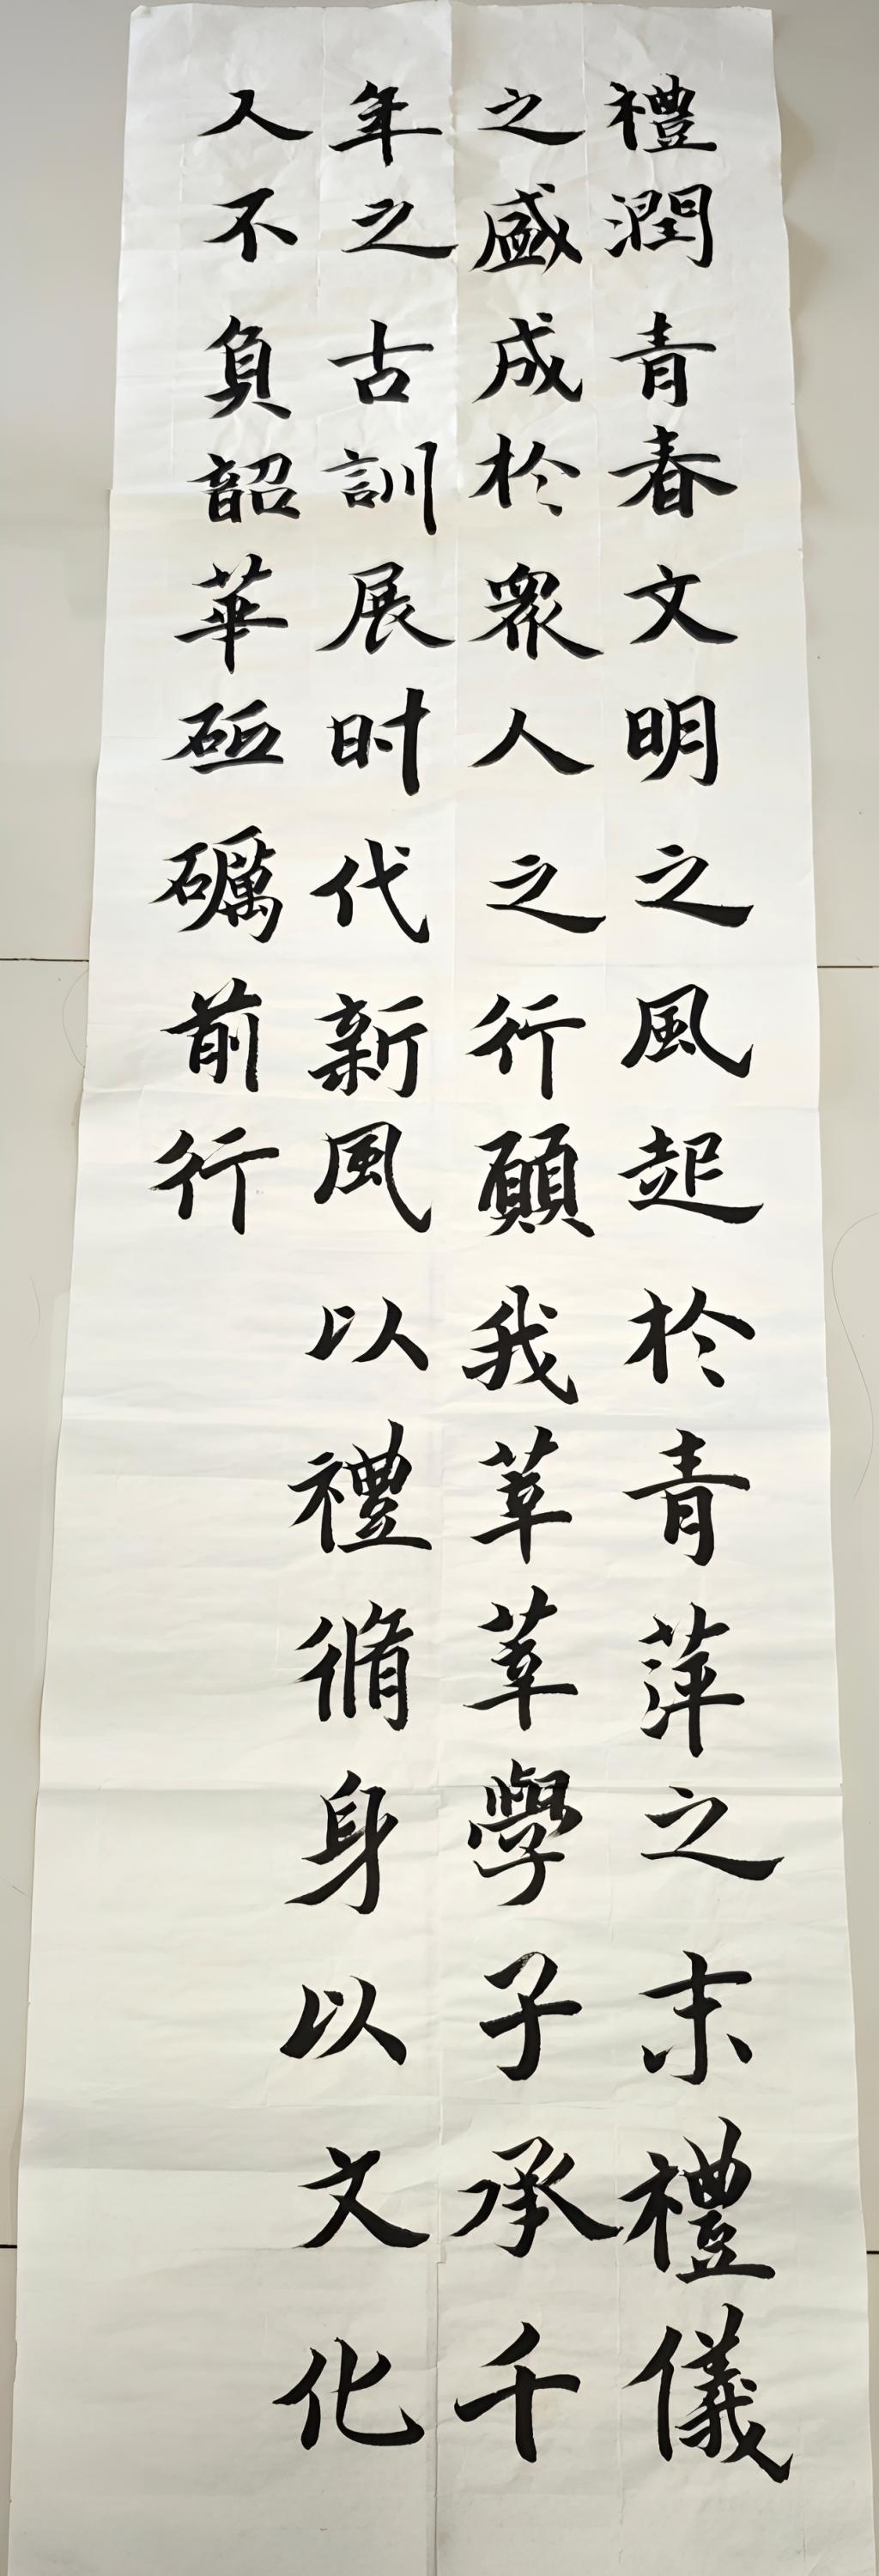 禮潤青春文明之風起於青萍之末禮儀
之盛成於眾人之行願我莘莘學子承千
年之古訓展时代新風以禮脩身以文化
人不負韶華砥礪前行